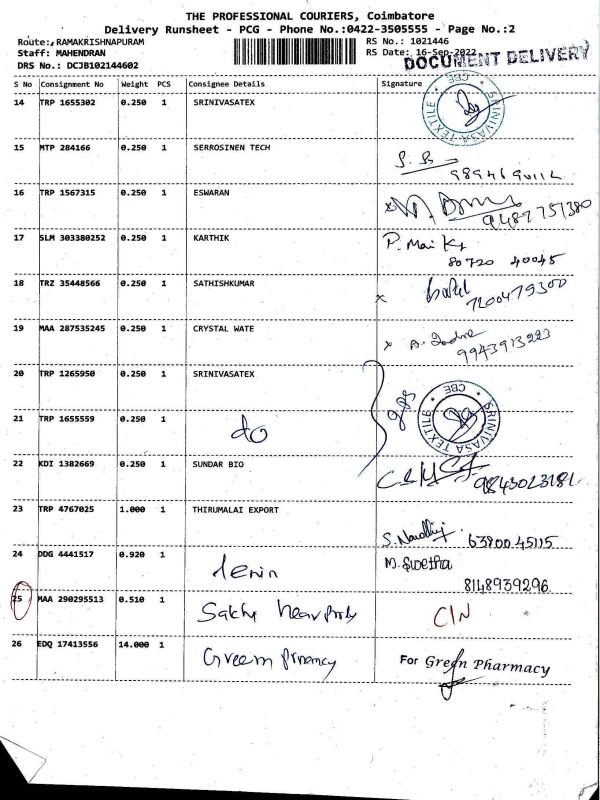 THE PROFESSIONAL COURIERS, Coimbatore
Delivery Runsheet - PCG - Phone No.:0422-3505555 - Page No.:2
Route: RAMAKRISHNAPURAM
Staff: MAHENDRAN
DRS No.: DCJB102144602
RS No.: 1021446
RS Date: 16-Sep-2022
DOCUMENT DELIVERY
S No Consignment No Weight PCS Consignee Details Signature
14 TRP 1655302 0.250 1 SRINIVASATEX
SRINIVASA TEXTILE * CBE *
15 MTP 284166 0.250 1 SERROSINEN TECH
S. B
16 TRP 1567315 0.250 1 ESWARAN
9487751380
17 SLM 303380252 0.250 1 KARTHIK
P. Mani
80720 40045
18 TRZ 35448566 0.250 1 SATHISHKUMAR
x
7200479300
19 MAA 287535245 0.250 1 CRYSTAL WATE
x A.
9943913223
20 TRP 1265950 0.250 1 SRINIVASATEX
21 TRP 1655559 0.250 1 do
SRINIVASA TEXTILE * CBE *
22 KDI 1382669 0.250 1 SUNDAR BIO
9843023181
23 TRP 4767025 1.000 1 THIRUMALAI EXPORT
S. Nandhini 63800 45115
24 DDG 4441517 0.920 1 lenin
M. Swetha
8148939296
25 MAA 290295513 0.510 1 Sakthi CIN
26 EDQ 17413556 14.000 1 Green
For Green Pharmacy